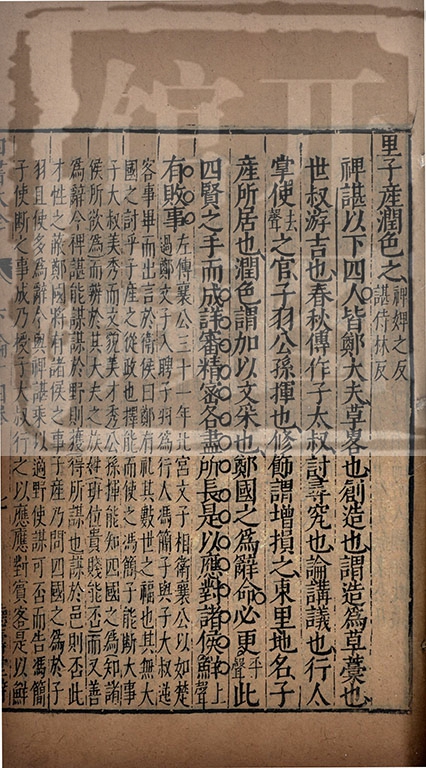 里子產潤色之裨婢之反
諶侍林反
裨諶以下四人皆鄭大夫草畧也創造也謂造爲草藁也
世叔游吉也春秋傳作子太叔討尋究也論講議也行人
掌使去聲之官子羽公孫揮也修飾謂增損之東里地名子
產所居也潤色謂加以文采也鄭國之爲辭命必更平聲此
四賢之手而成詳審精密各盡所長是以應對諸侯鮮上聲
有敗事左傳襄公三十一年北宮文子相衛襄公以如楚
過鄭文子入聘子羽爲行人馮簡子與子大叔逆
客事畢而出言於衛侯曰鄭有礼其數世之福也其無大
國之討乎子產之從政也擇能而使之馮簡子能斷大事
子大叔美秀而文貌美才秀公孫揮能知四國之爲知諸
侯所欲爲而辨於其大夫之族姓班位貴賤能否而又善
爲辭令裨諶能謀謀於野則獲得所謀也謀於邑則否此
才性之蔽鄭國將有諸侯之事子產乃問四國之爲於子
羽且使多爲辭令與裨諶乘以適野使謀可否而告馮簡
子使斷之事成乃授子大叔行之以應應對賓客是以鮮